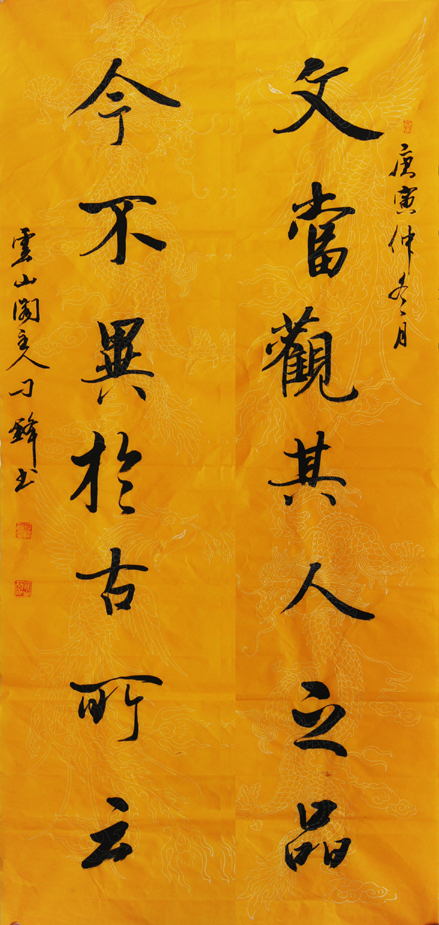 庚寅仲冬月
文當觀其人之品
今不異於古所云
雲山閣主人刁鋒书